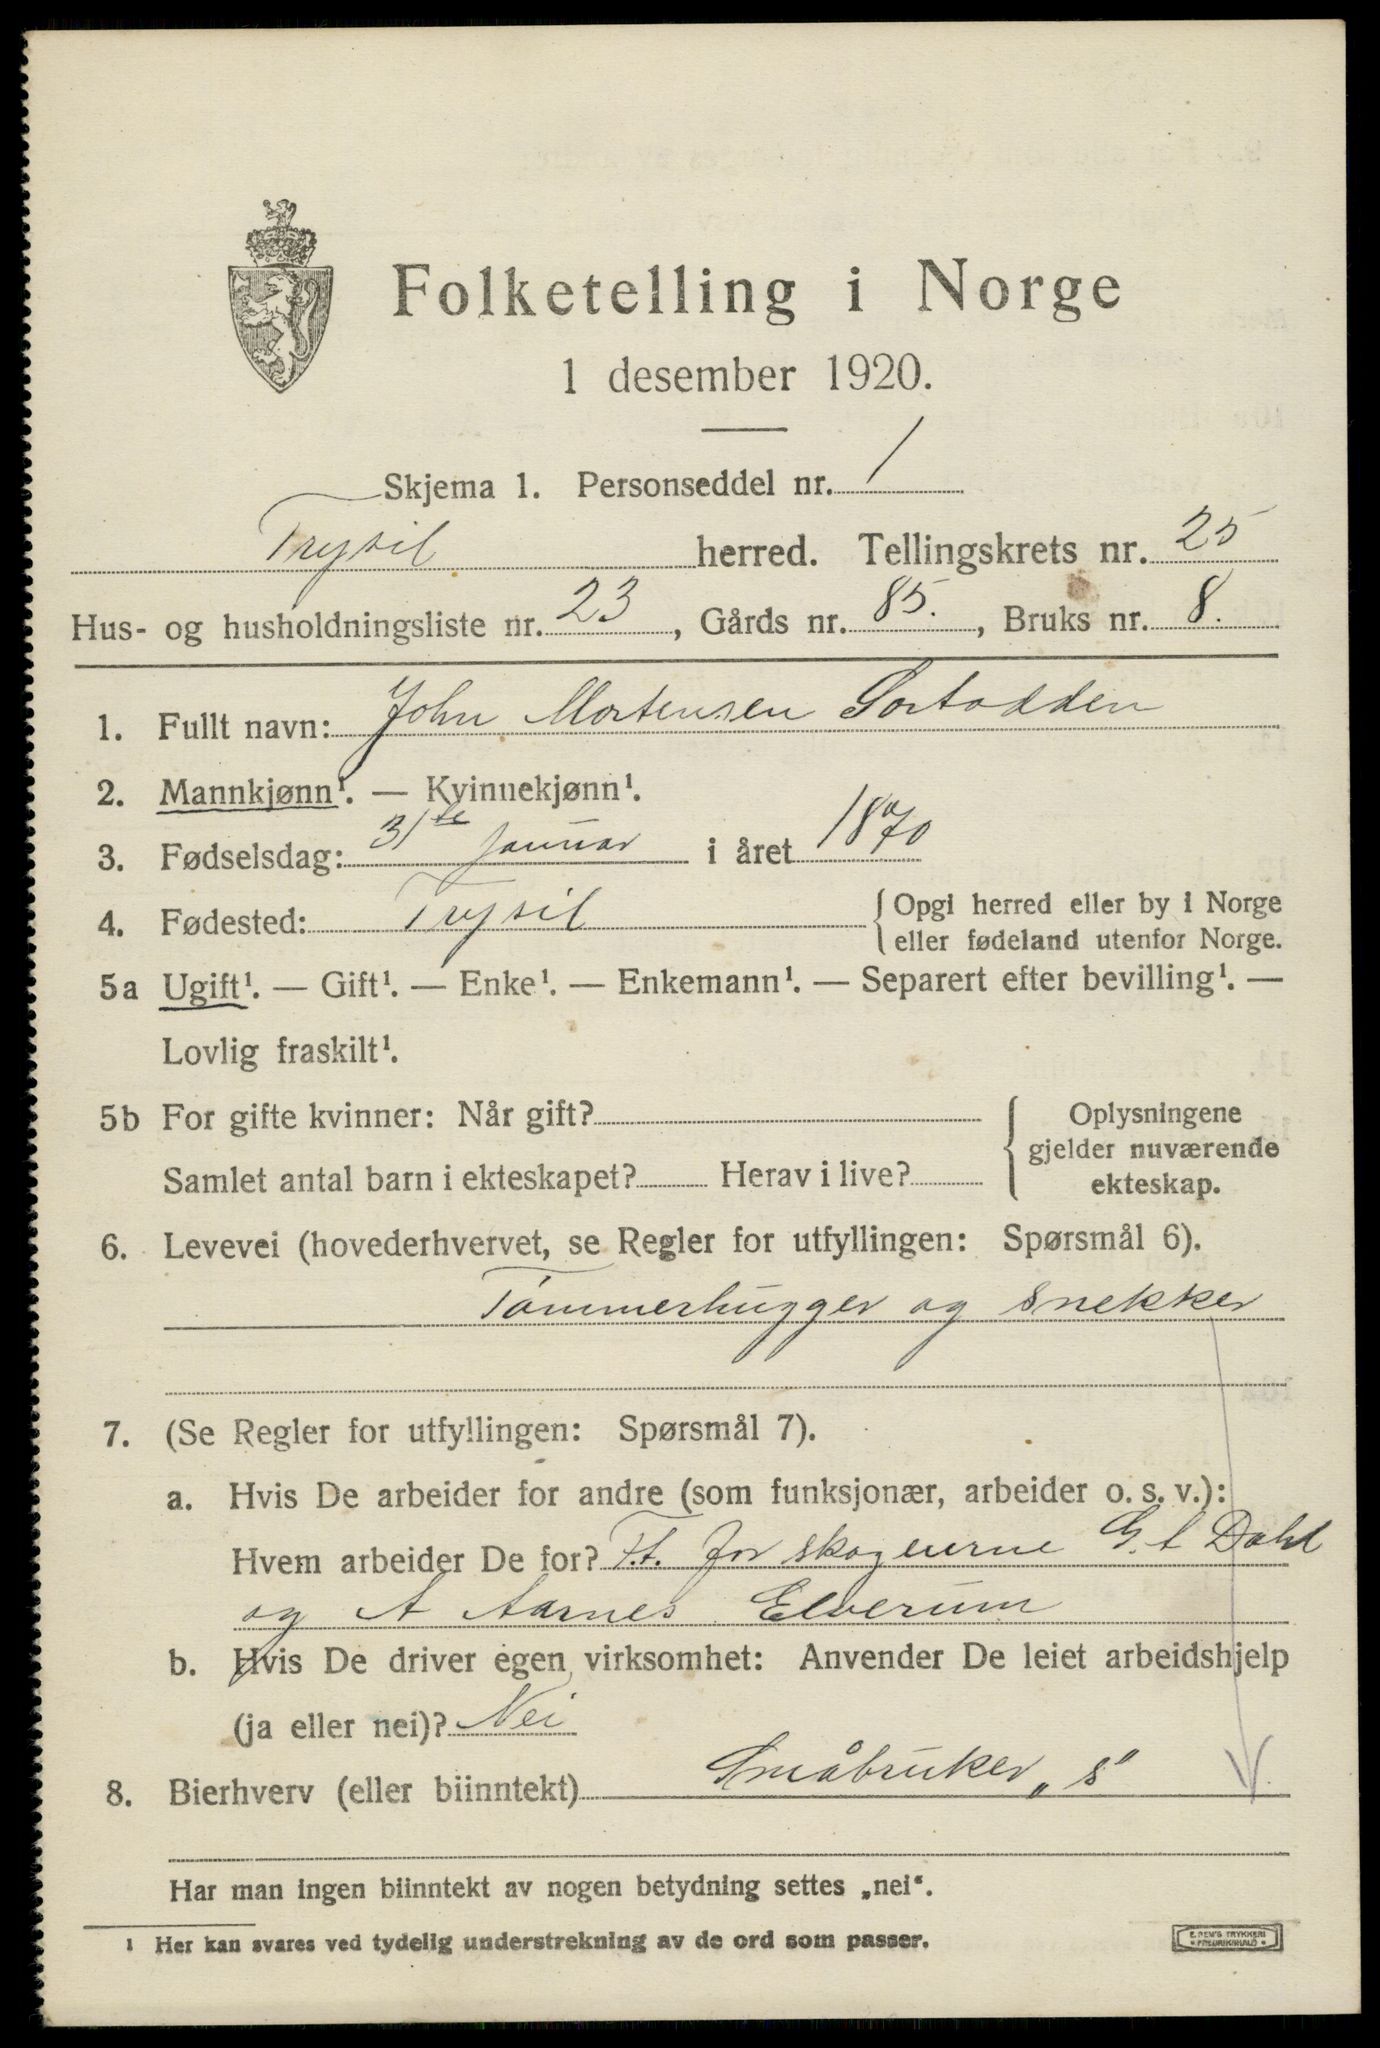 Folketelling i Norge
1 desember 1920.
Skjema 1. Personseddel nr. 1
Trysil herred. Tellingskrets nr. 25
Hus- og husholdningsliste nr. 23, Gårds nr. 85., Bruks nr. 8.
1. Fullt navn: John Mortensen Sortodden
2. Mannkjønn¹. — Kvinnekjønn¹.
3. Fødselsdag: 31te januar i året 1870
4. Fødested: Trysil {Opgi herred eller by i Norge
eller fødeland utenfor Norge.
5a Ugift¹. — Gift¹. — Enke¹. — Enkemann¹. — Separert efter bevilling¹. —
Lovlig fraskilt¹.
5b For gifte kvinner: Når gift? { Oplysningene
gjelder nuværende
Samlet antal barn i ekteskapet? Herav i live? ekteskap.
6. Levevei (hovederhvervet, se Regler for utfyllingen: Spørsmål 6).
Tømmerhugger og snekker
7. (Se Regler for utfyllingen: Spørsmål 7).
a. Hvis De arbeider for andre (som funksjonær, arbeider o. s. v.):
Hvem arbeider De for? F.t. for skogeierne G. A Dahl
og A Aarnes Elverum
b. Hvis De driver egen virksomhet: Anvender De leiet arbeidshjelp
(ja eller nei)? Nei
8. Bierhverv (eller biinntekt) Småbruker „s"
Har man ingen biinntekt av nogen betydning settes „nei“.
¹ Her kan svares ved tydelig understrekning av de ord som passer.
E. SEM'S TRYKKERI
• FREDRIKSHALD •